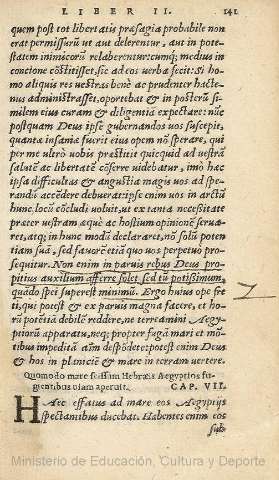 LIBER II. 141
quem post tot libertatis præsagia probabile non
erat permissurū ut aut delerentur, aut in pote-
statem inimicorū relaberentur: cumq; medius in
concione cōstitisset, sic ad eos verba fecit: Si ho-
mo aliquis res uestras benè ac prudenter hacte-
nus administrasset, oportebat & in posterū si-
milem eius curam & diligentiā expectare: nūc
postquam Deus ipse gubernandos uos suscepit,
quantæ insaniæ fuerit eius opem nō sperare, qui
per me ultrò uobis prestitit quicquid ad uestrā
salutē ac libertatē cōferre uidebatur, imò hæc
ipsa difficultas & angustia magis uos ad spe-
randū accēdere debuerat: ipse enim uos in arctū
hunc locū cōcludi uoluit, ut ex tanta necessitate
præter uestram æquè ac hostium opinionē serua-
ret, atq; in hunc modū declararet, nō solū poten
tiam suā, sed fauorē etiā quo uos perpetuo pro-
sequitur. Non enim in paruis rebus Deus pro-
pitius auxilium afferre solet, sed tū potissimum,
quādo spei superest minimū. Ergo huius ope fre
ti, qui potest & ex paruis magna facere, et ho-
rū potētiā debilē reddere, ne terreamini Aegy-
ptiorū apparatu, neq; propter fugā mari et mō-
tibus impeditā aīm despōdete: potest enim Deus
& hos in planiciē & mare in terram vertere.
Quomodo mare fissum Hebræis Aegyptios fu-
gientibus uiam aperuit. CAP. VII.
HAec effatus ad mare eos Aegyptijs
spectantibus ducebat. Habentes enim eos
sub
Ministerio de Educación, Cultura y Deporte